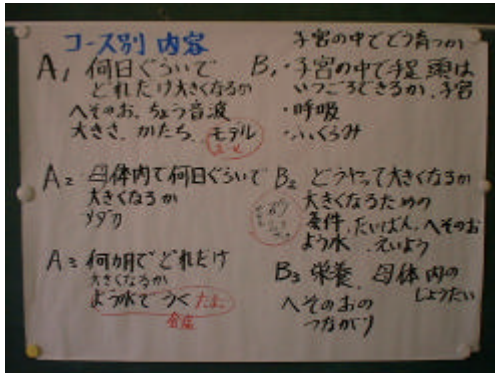 コース別 内容
A1 何日ぐらいで
どれだけ大きくなるか
へそのお、ちょう音波
大きさ、かたち、モデル
A2 母体内で何日ぐらいで
大きくなるか
メダカ
A3 何カ月でどれだけ
大きくなるか
よう水でうく たまご
子宮の中でどう育つか
B1 ・子宮の中で手足、頭は
いつごろできるか、子宮
・呼吸
・ふくらみ
B2 どうやって大きくなるか
大きくなるための
条件、たいばん、へそのお
よう水、えいよう
B3 栄養、母体内の
じょうたい
へそのおの
つながり